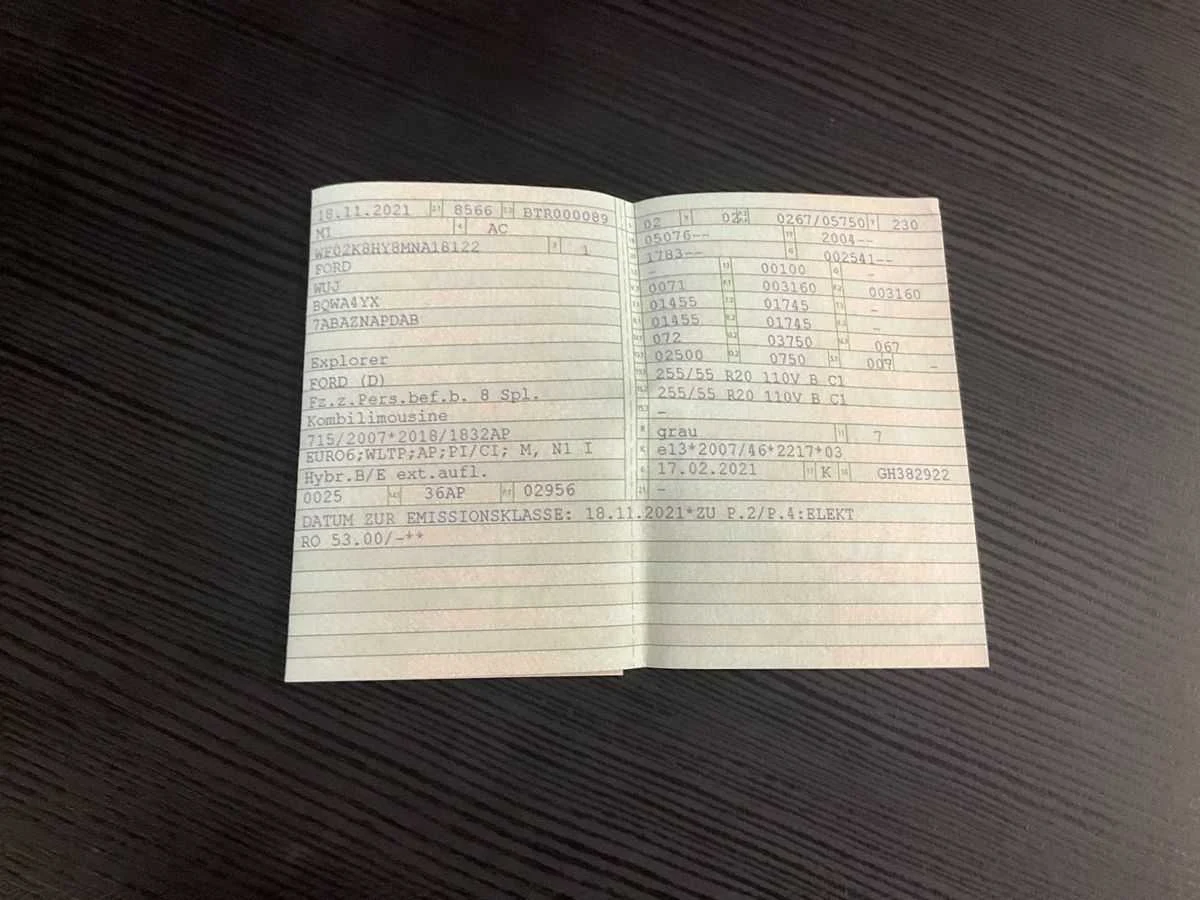 18.11.2021 8566 BTR000089
M1 AC
WF02K8HY8MNA18122 1
FORD
WUJ
BQWA4YX
7ABAZNAPDAB
Explorer
FORD (D)
Fz.z.Pers.bef.b. 8 Spl.
Kombilimousine
715/2007*2018/1832AP
EURO6;WLTP;AP;PI/CI; M, N1 I
Hybr.B/E ext.aufl.
0025 36AP 02956
02 02 0267/05750 230
05076-- 2004--
1783-- 002541--
- 00100 -
0071 003160 003160
01455 01745 -
01455 01745 -
072 03750 067
02500 0750 007 -
255/55 R20 110V B C1
255/55 R20 110V B C1
-
grau 7
e13*2007/46*2217*03
17.02.2021 K GH382922
-
DATUM ZUR EMISSIONSKLASSE: 18.11.2021*ZU P.2/P.4:ELEKT
RO 53.00/-**